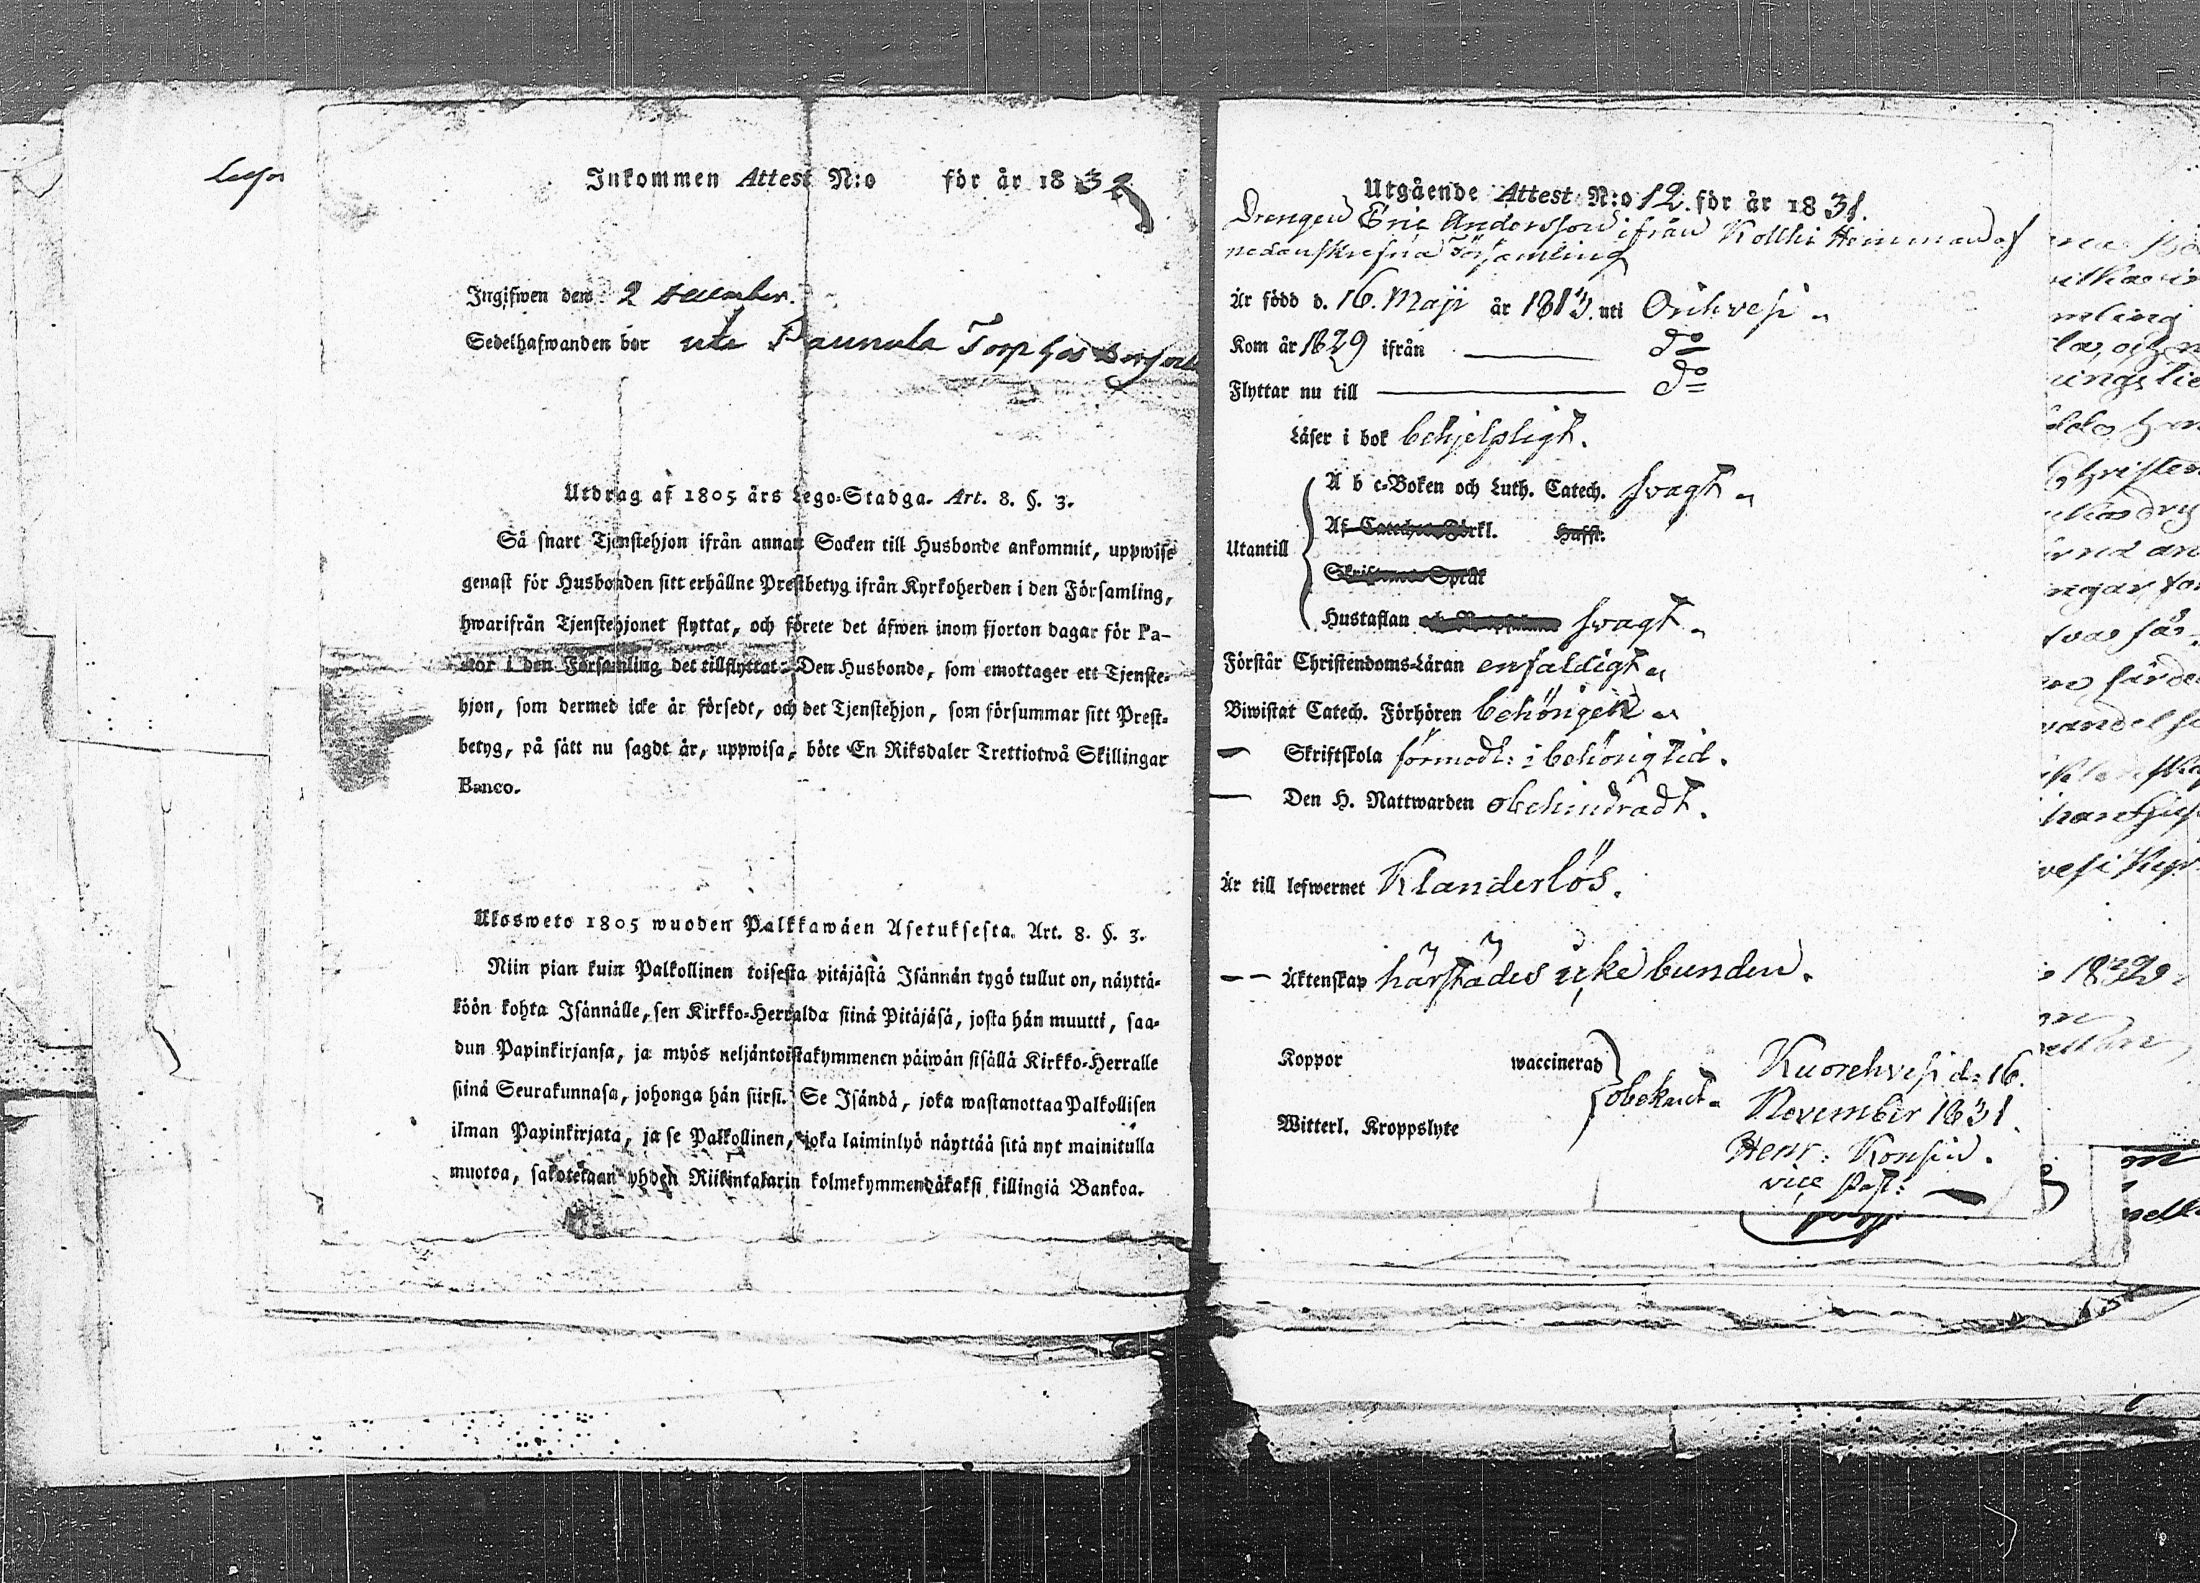 Inkommen Attest N:o för år 1832
Ingifwen den 2 December.
Sedelhafwanden bor uti Paunula Torp hos
Utdrag af 1805 års Lego-Stadga. Art. 8. §. 3.
Så snart Tjenstehjon ifrån annan Socken till Husbonde ankommit, uppwise
genast för Husbonden sitt erhållne Prestbetyg ifrån Kyrkoherden i den Församling,
hwarifrån Tjenstehjonet flyttat, och förete det äfwen inom fjorton dagar för Pa-
stor i den Församling det tillflyttat. Den Husbonde, som emottager ett Tjenste-
hjon, som dermed icke är försedt, och det Tjenstehjon, som försummar sitt Prest-
betyg, på sätt nu sagdt är, uppwisa, böte En Riksdaler Trettiotwå Skillingar
Banco.
Ulosweto 1805 wuoden Palkkawäen Asetuksesta. Art. 8. §. 3.
Niin pian kuin Palkollinen toisesta pitäjästä Isännän tygö tullut on, näyttä-
köön kohta Isännälle, sen Kirkko-Herralda siinä Pitäjäsä, josta hän muutti, saa-
dun Papinkirjansa, ja myös neljäntoistakymmenen päiwän sisällä Kirkko-Herralle
siinä Seurakunnasa, johonga hän siirsi. Se Isändä, joka wastanottaa Palkollisen
ilman Papinkirjata, ja se Palkollinen, joka laiminlyö näyttää sitä nyt mainitulla
muotoa, sakotetaan yhden Riikintalarin kolmekymmendäkaksi killingiä Bankoa.
Utgående Attest N:o 12. för år 1831.
Drengen Eric Andersson ifrån Kollki Hemman af
nedanskrefna Församling
Är född d. 16. Maji år 1813. uti Orihvesi
Kom år 1829 ifrån do
Flyttar nu till do
Läser i bok behjelpligt.
A b c-Boken och Luth. Catech. svagt
Utantill
Hustaflan svagt
Förstår Christendoms-Läran enfaldigt
Biwistat Catech. Förhören behörigen
— Skriftskola förmodl: i behörig tid.
— Den H. Nattwarden obehindradt.
Är till lefwernet Klanderlös.
— — Äktenskap härstädes icke bunden.
Koppor waccinerad
obekant
Witterl. Kroppslyte
Kuorehvesi d: 16.
November 1831.
Henr: Konsin.
vice Past: